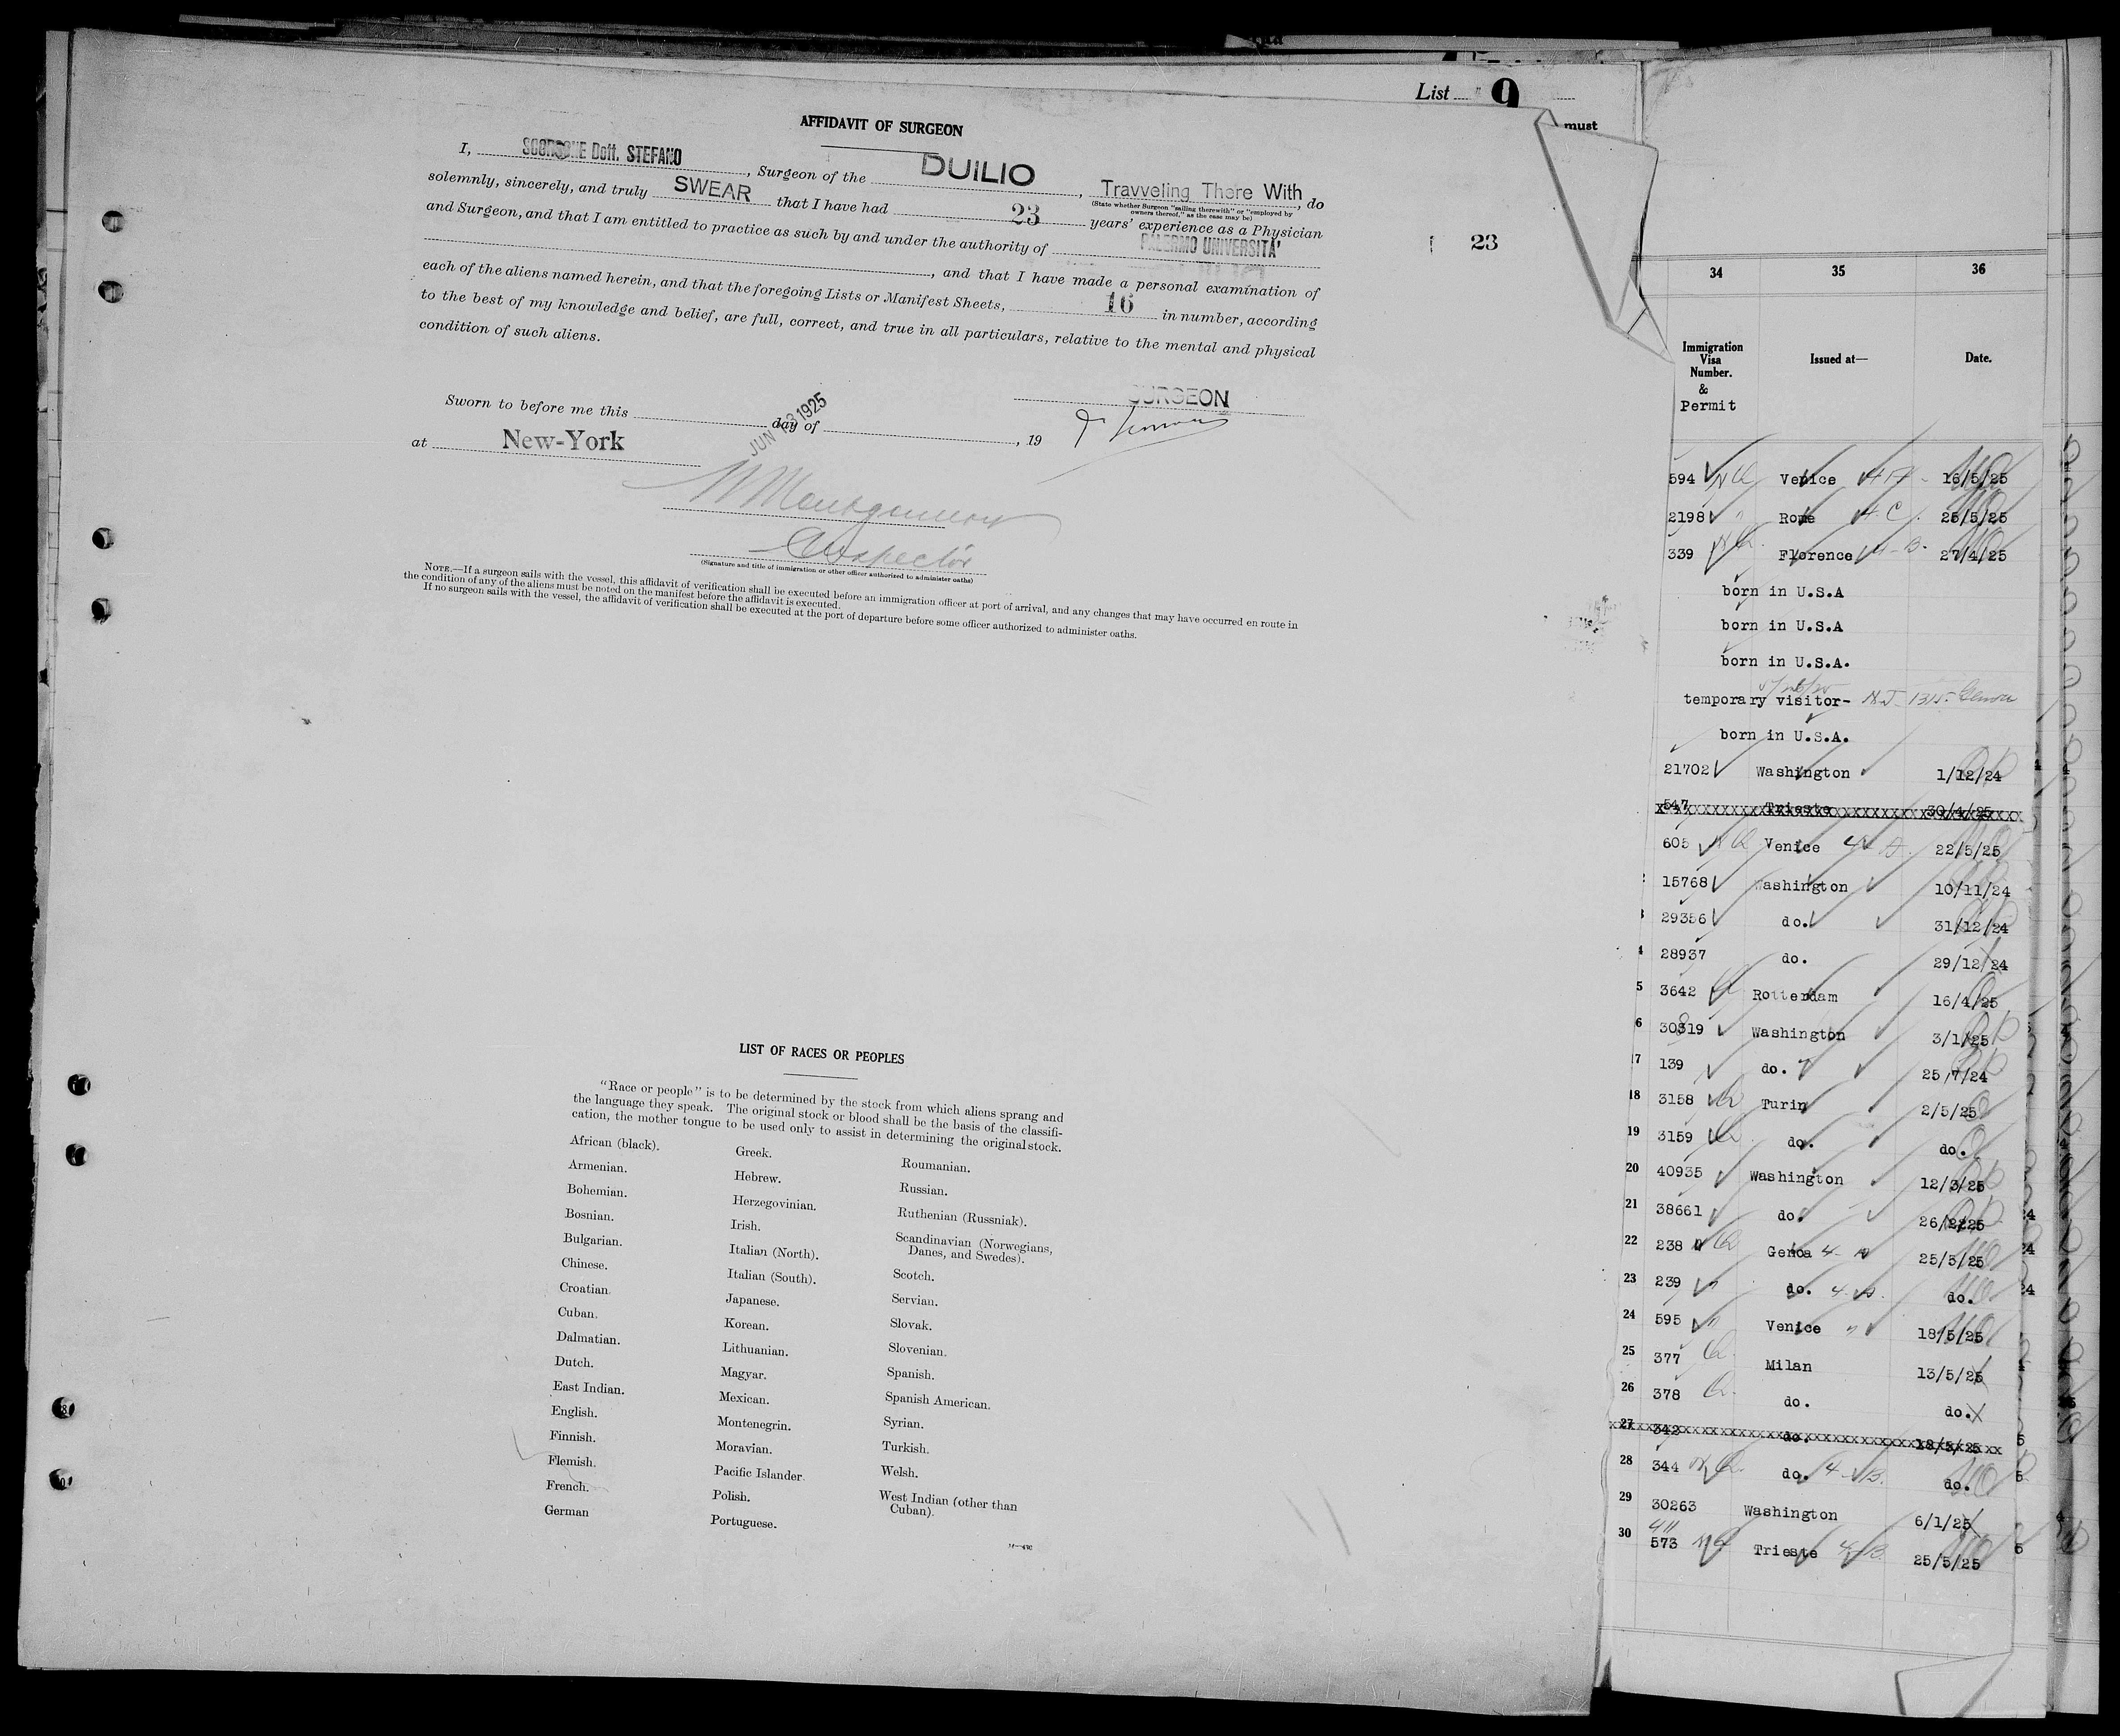 List 9
must
AFFIDAVIT OF SURGEON
I, Dott. STEFANO, Surgeon of the DUILIO, Travveling There With, do
(State whether Surgeon "sailing therewith" or "employed by
owners thereof," as the case may be)
solemnly, sincerely, and truly SWEAR that I have had 23 years' experience as a Physician
and Surgeon, and that I am entitled to practice as such by and under the authority of PALERMO UNIVERSITA'
, and that I have made a personal examination of
each of the aliens named herein, and that the foregoing Lists or Manifest Sheets, 16 in number, according
to the best of my knowledge and belief, are full, correct, and true in all particulars, relative to the mental and physical
condition of such aliens.
SURGEON
Sworn to before me this day of , 19
JUN 1925
at New-York
Montgomery
Inspector
(Signature and title of immigration or other officer authorized to administer oaths)
NOTE.—If a surgeon sails with the vessel, this affidavit of verification shall be executed before an immigration officer at port of arrival, and any changes that may have occurred en route in
the condition of any of the aliens must be noted on the manifest before the affidavit is executed.
If no surgeon sails with the vessel, the affidavit of verification shall be executed at the port of departure before some officer authorized to administer oaths.
LIST OF RACES OR PEOPLES
"Race or people" is to be determined by the stock from which aliens sprang and
the language they speak. The original stock or blood shall be the basis of the classifi-
cation, the mother tongue to be used only to assist in determining the original stock.
African (black).
Armenian.
Bohemian.
Bosnian.
Bulgarian.
Chinese.
Croatian.
Cuban.
Dalmatian.
Dutch.
East Indian.
English.
Finnish.
Flemish.
French.
German
Greek.
Hebrew.
Herzegovinian.
Irish.
Italian (North).
Italian (South).
Japanese.
Korean.
Lithuanian.
Magyar.
Mexican.
Montenegrin.
Moravian.
Pacific Islander.
Polish.
Portuguese.
Roumanian.
Russian.
Ruthenian (Russniak).
Scandinavian (Norwegians,
Danes, and Swedes).
Scotch.
Servian.
Slovak.
Slovenian.
Spanish.
Spanish American.
Syrian.
Turkish.
Welsh.
West Indian (other than
Cuban).
23
34 35 36
Immigration
Visa
Number.
&
Permit
Issued at—
Date.
594 Venice 16/5/25
2198 Rome 25/5/25
339 Florence 27/4/25
born in U.S.A
born in U.S.A
born in U.S.A.
temporary visitor- 1315 Genoa
born in U.S.A.
21702 Washington 1/12/24
547 Trieste 30/4/25
605 Venice 22/5/25
15768 Washington 10/11/24
29356 do. 31/12/24
28937 do. 29/12/24
5 3642 Rotterdam 16/4/25
6 30319 Washington 3/1/25
17 139 do. 25/7/24
18 3158 Turin 2/5/25
19 3159 do. do.
20 40935 Washington 12/3/25
21 38661 do. 26/2/25
22 238 Genoa 25/5/25
23 239 do. do.
24 595 Venice 18/5/25
25 377 Milan 13/5/25
26 378 do. do.
27 342 do. 18/5/25
28 344 do. 4-B. do.
29 30263 Washington 6/1/25
30 573 Trieste 25/5/25